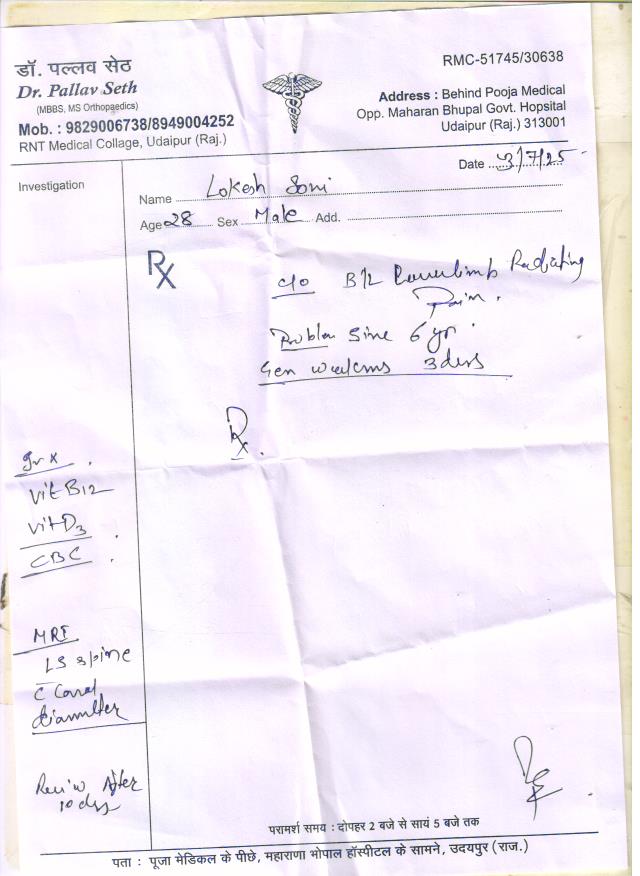 डॉ. पल्लव सेठ
Dr. Pallav Seth
(MBBS, MS Orthopaedics)
Mob. : 9829006738/8949004252
RNT Medical Collage, Udaipur (Raj.)
RMC-51745/30638
Address : Behind Pooja Medical
Opp. Maharan Bhupal Govt. Hopsital
Udaipur (Raj.) 313001
Date 3/7/25
Investigation
Name Lokesh Soni
Age 28 Sex Male Add.
Rx
c/o B/L Lowerlimb Radiating
Pain.
Problem Sine 6 yr.
Gen
Rx.
Vit B12
Vit D3
CBC
MRI
LS spine
C Canal
diamter
Reviw After
10 dys
परामर्श समय : दोपहर 2 बजे से सायं 5 बजे तक
पता : पूजा मेडिकल के पीछे, महाराणा भोपाल हॉस्पीटल के सामने, उदयपुर (राज.)